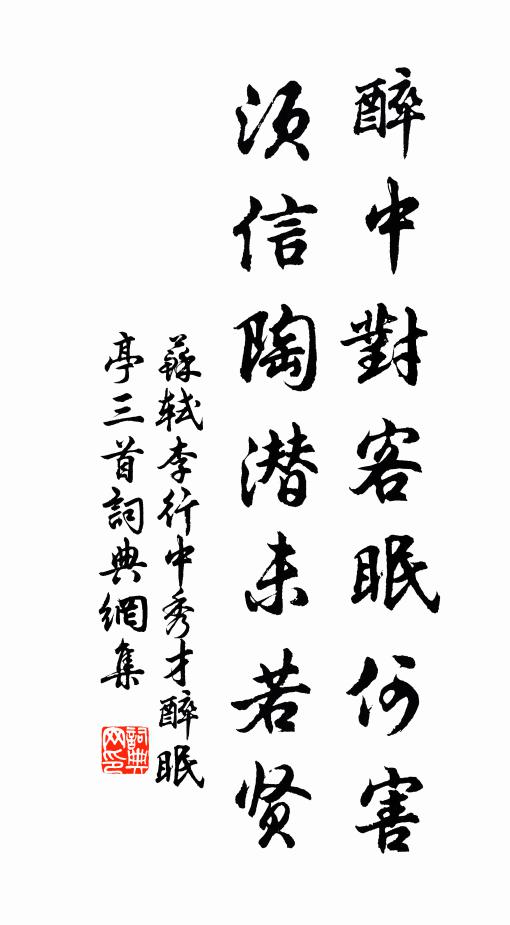 醉中對客眠何害
須信陶潛未若賢
蘇軾李行中秀才醉眠
亭三首詞典網集
詞典网印